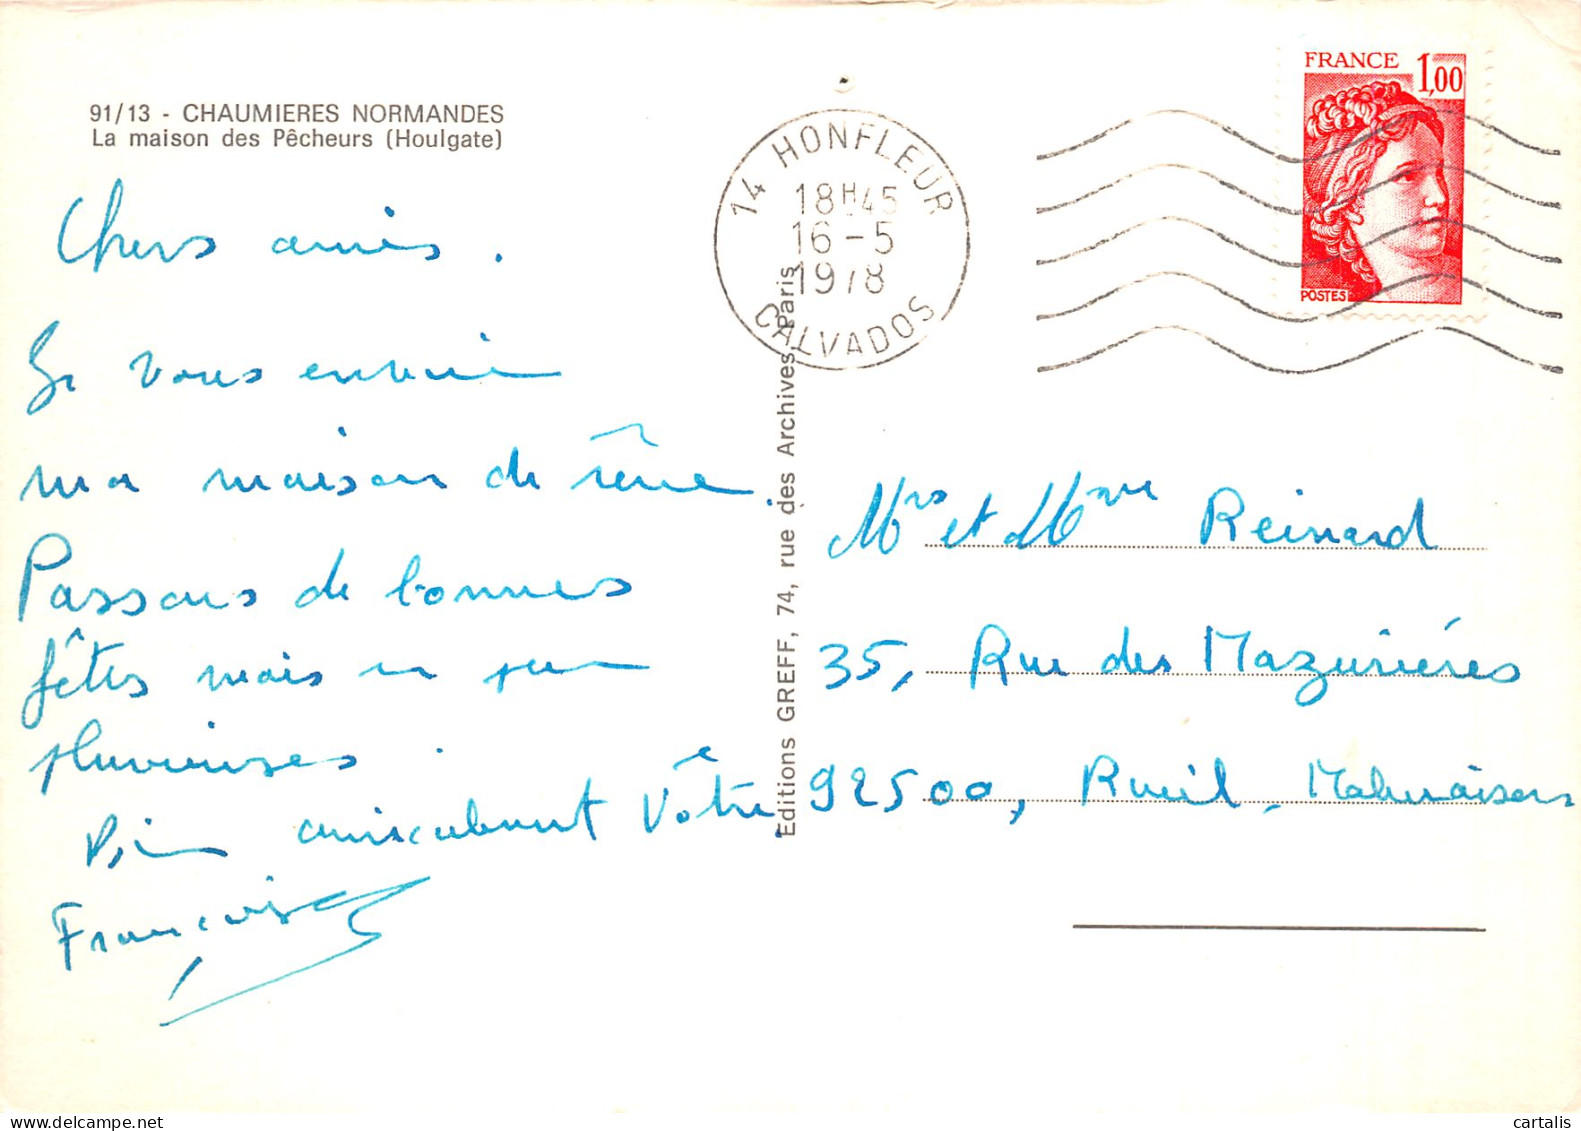 91/13 - CHAUMIERES NORMANDES
La maison des Pêcheurs (Houlgate)
Chers amis.
Je vous envoie
ma maison de rêve.
Passons de bonnes
fêtes mais un peu
pluvieuses.
Bien amicalement Vôtre
Françoise
Editions GREFF, 74, rue des Archives, Paris
14 HONFLEUR
18H45
16-5
1978
CALVADOS
FRANCE 1,00
POSTES
Mrs et Mme Reinard
35, Rue des Mazurières
92500, Rueil-Malmaison
cartalis